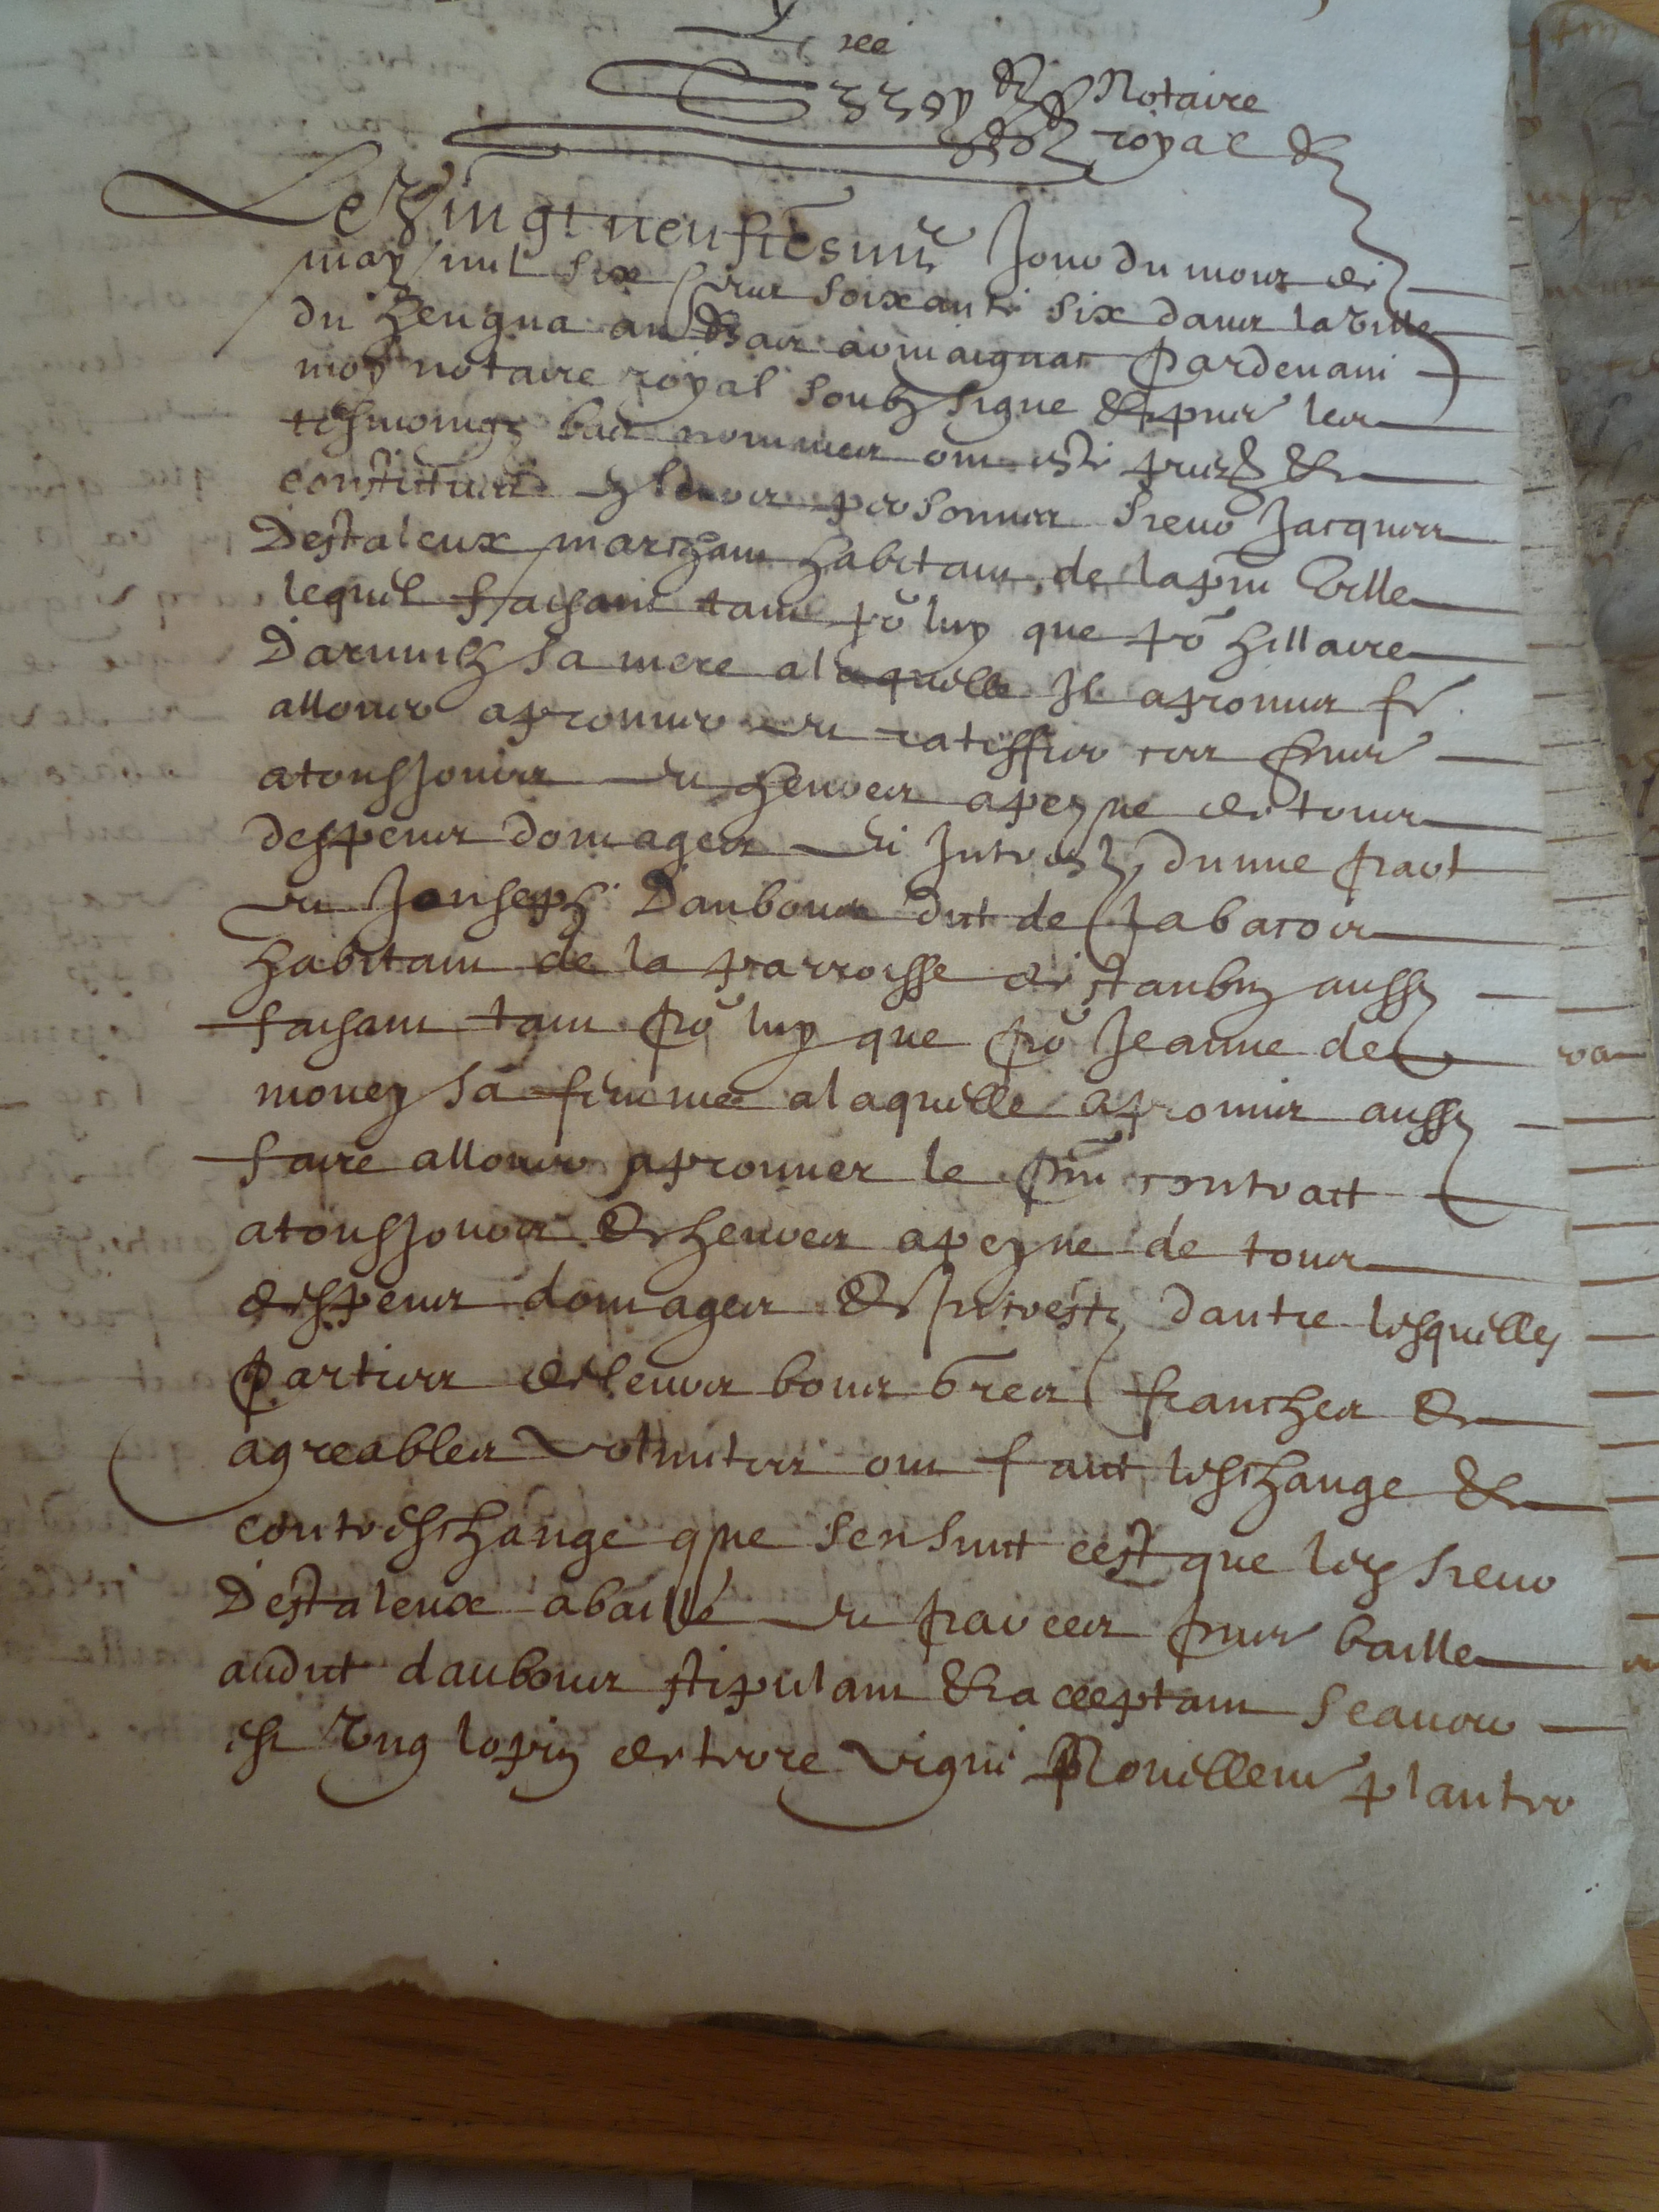 Notaire
royal
Le Vingt neufiesme Jour du mois de
may mil six cens soixante six dans la ville
du heugua au bas armaignac pardevant
moy notaire royal soubz signe et pnts les
tesmoingz bas nommes ont este pntz et
constitues en leurs personnes sieur Jacques
Destaleux marchant habitant de la pnt ville
lequel faisant tant pr luy que pr hillaire
sa mere a laquelle Il a promis fe
allouer aprouver et ratiffier ces pntes
a tousjours et heures a peyne de tous
despens domages et Intrestz dunne part
et Jouseph Daubons dit de
habitant de la parroisse destanbz aussy
faisant tant pr luy que pr Jeanne de
mouey sa femme a laquelle a promis aussy
faire allouer aprouver le pnt contract
a tousjours et heures a peyne de tous
despens domages et Intrestz dautre lesquelles
parties de leurs bons gres franches et
agreables volontes ont faict leschange et
contreschange que sensuit cest que led sieur
Destaleux a baille et par ces pntes baille
audit daubons stipulant et aceptant scavoir
est Ung lopin de terre vigne plante